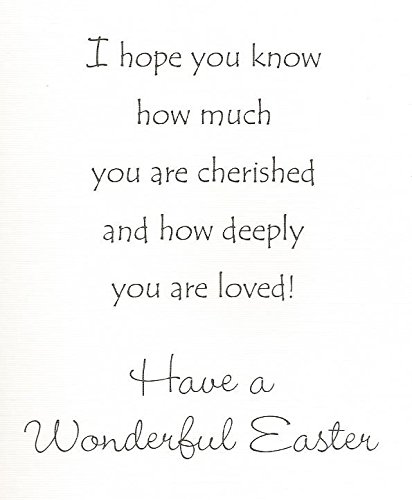 I hope you know
how much
you are cherished
and how deeply
you are loved!
Have a
Wonderful Easter